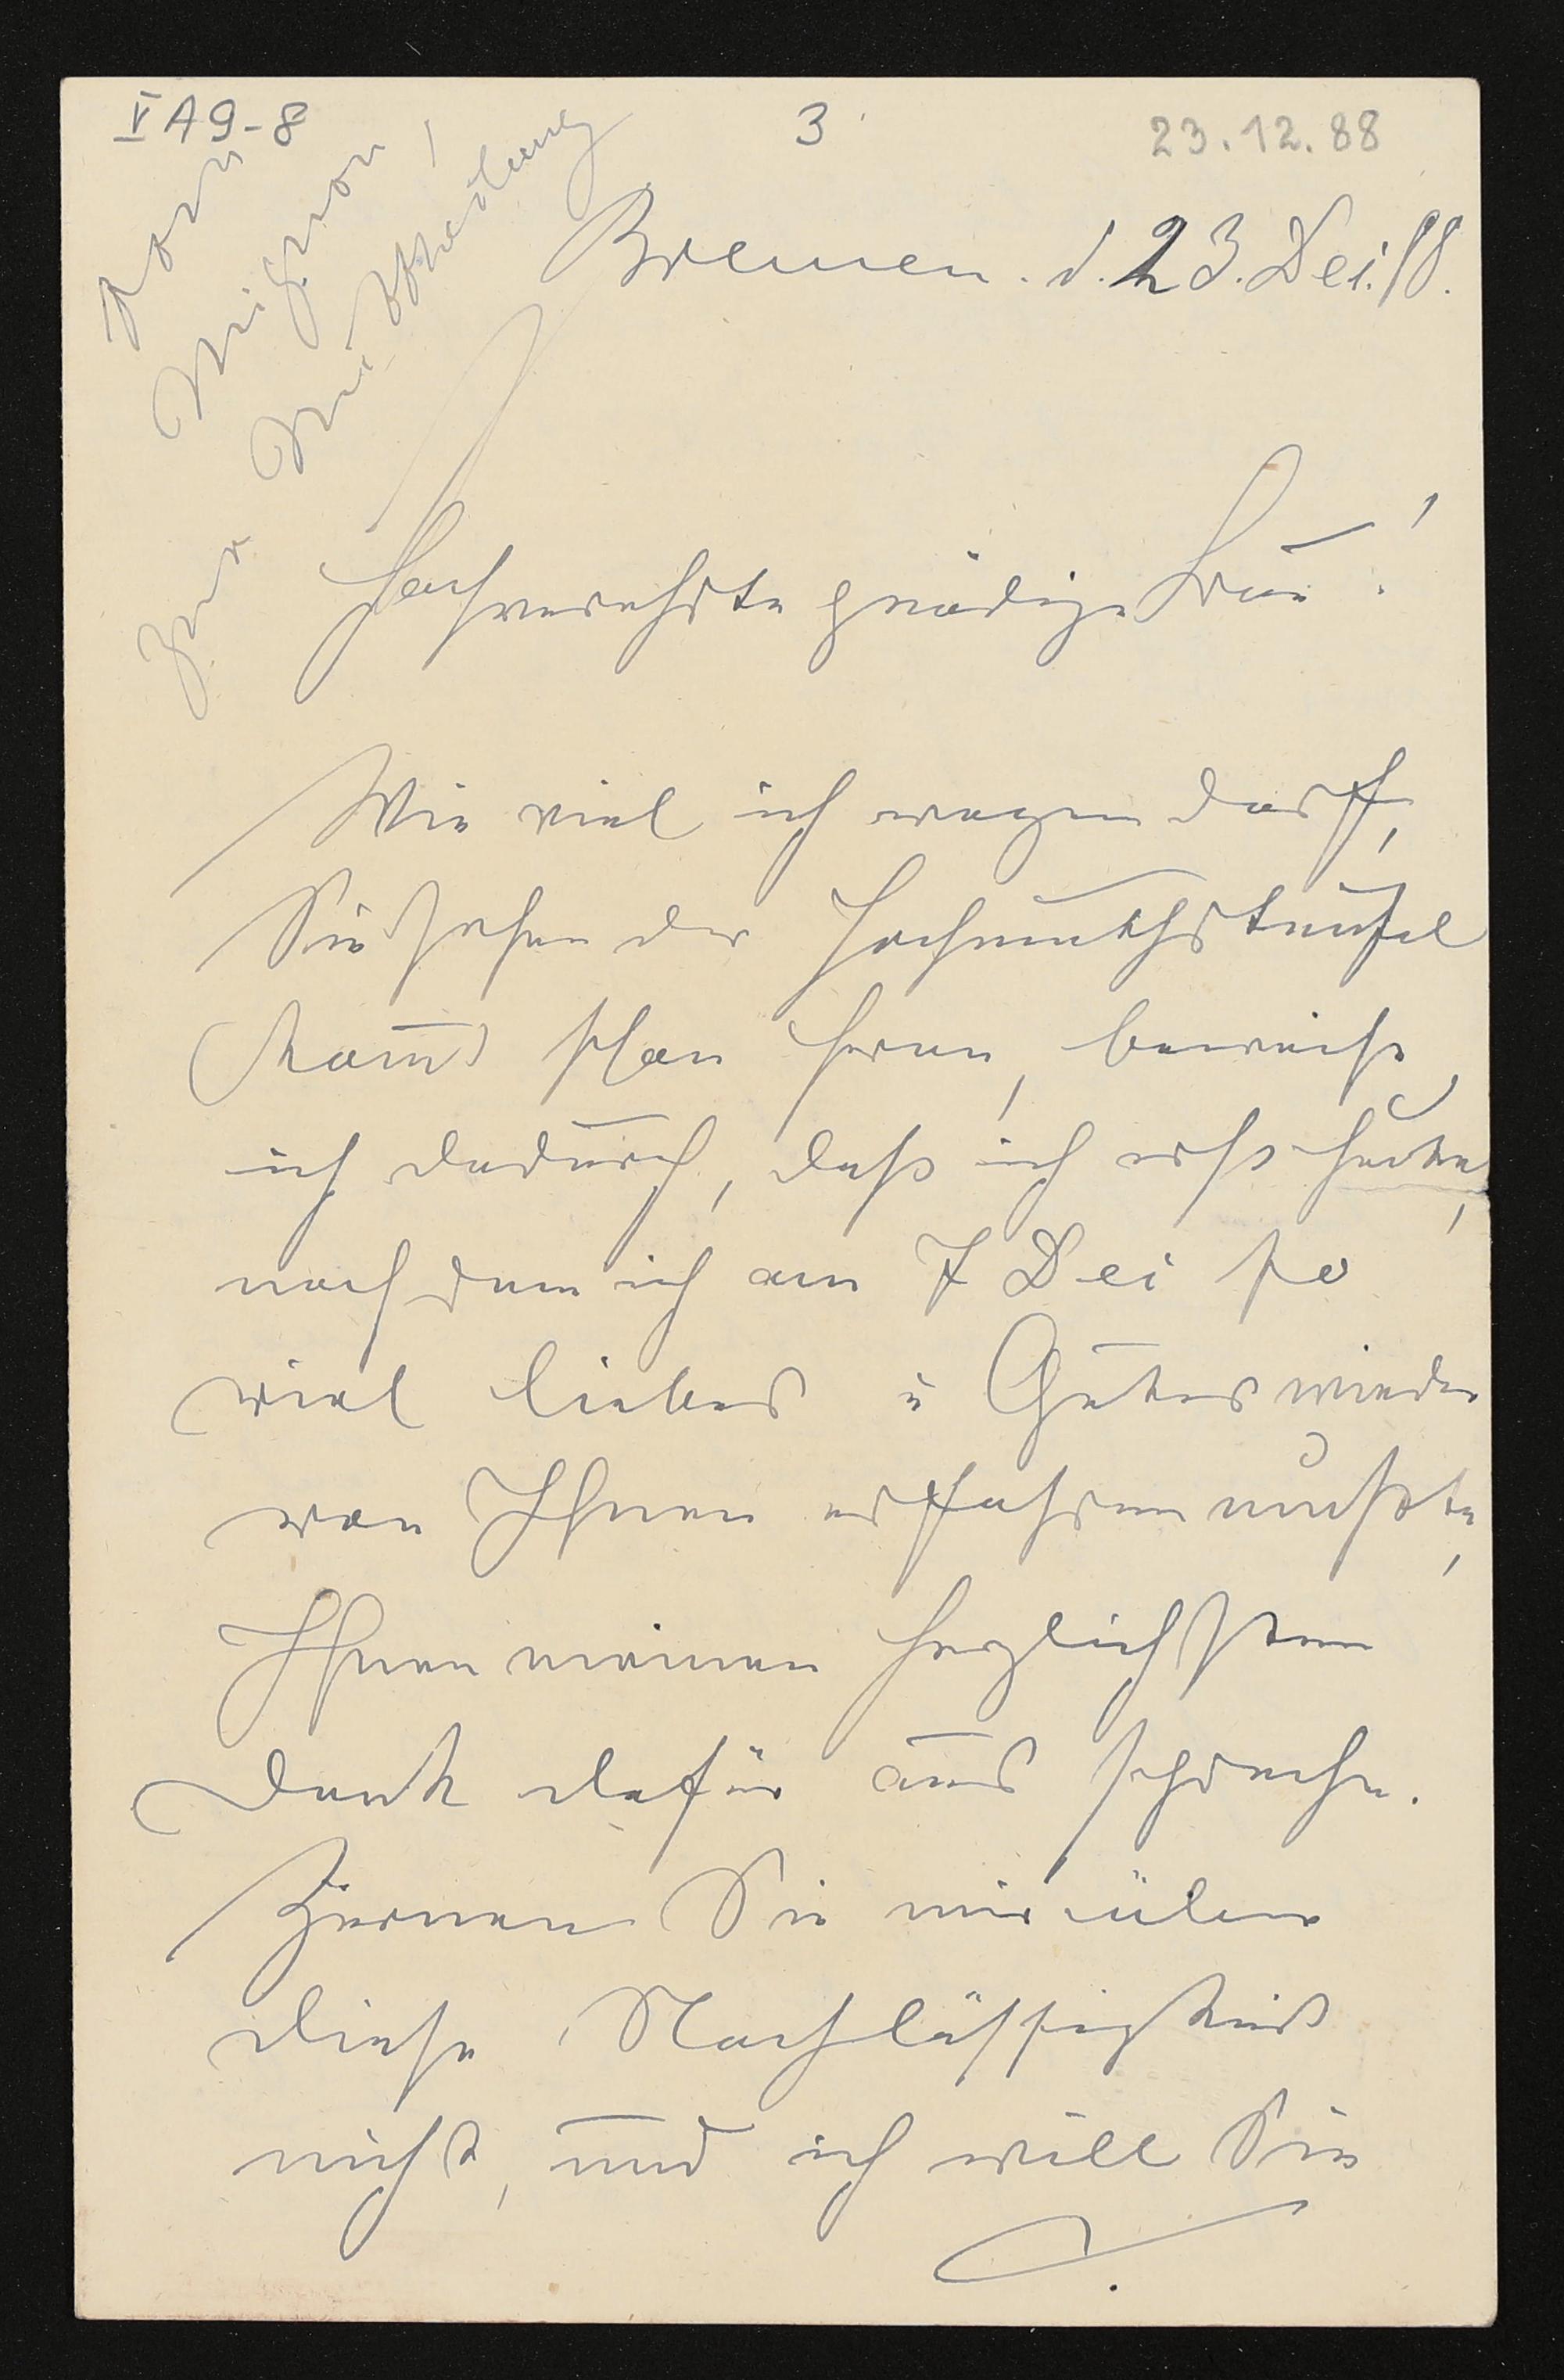 V A 9 - 8
3
23.12.88
von
Mignon!
zur Mittheilung
Bremen. d. 23. Dei. 88.
Hochverehrte gnädige Frau!
Wie viel ich wagen darf,
Sie sehen der Hochmuthsteufel
kom̄t schon heran, beweise
ich dadurch, daß ich erst heute,
nachdem ich am 7 Dei so
viel liebes u Gutes wieder
von Ihnen erfahren mußte,
Ihnen meinen herzlichsten
Dank dafür aus spreche.
Zürnen Sie mir über
diese Nachlässigkeit
nicht, und ich will Sie